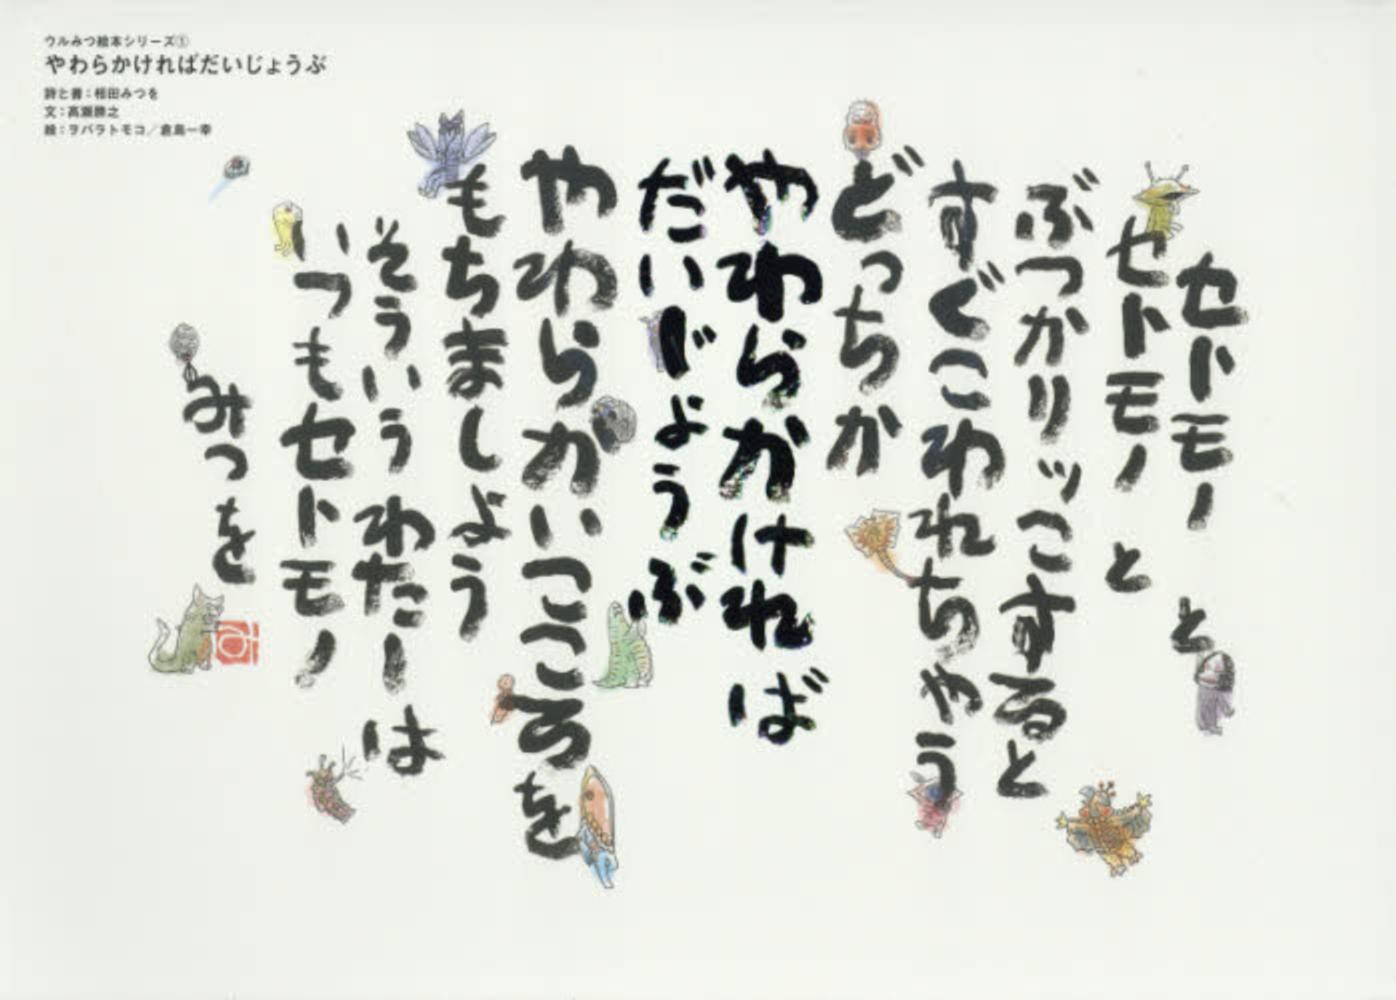 ウルみつ絵本シリーズ①
やわらかければだいじょうぶ
詩と書：相田みつを
文：髙瀬勝之
絵：ヲバラトモコ／倉島一幸
セトモノ と
セトモノ と
ぶつかりッこすると
すぐこわれちゃう
どっちか
やわらかければ
だいじょうぶ
やわらかいこころを
もちましょう
そういうわたしは
いつもセトモノ
みつを
み